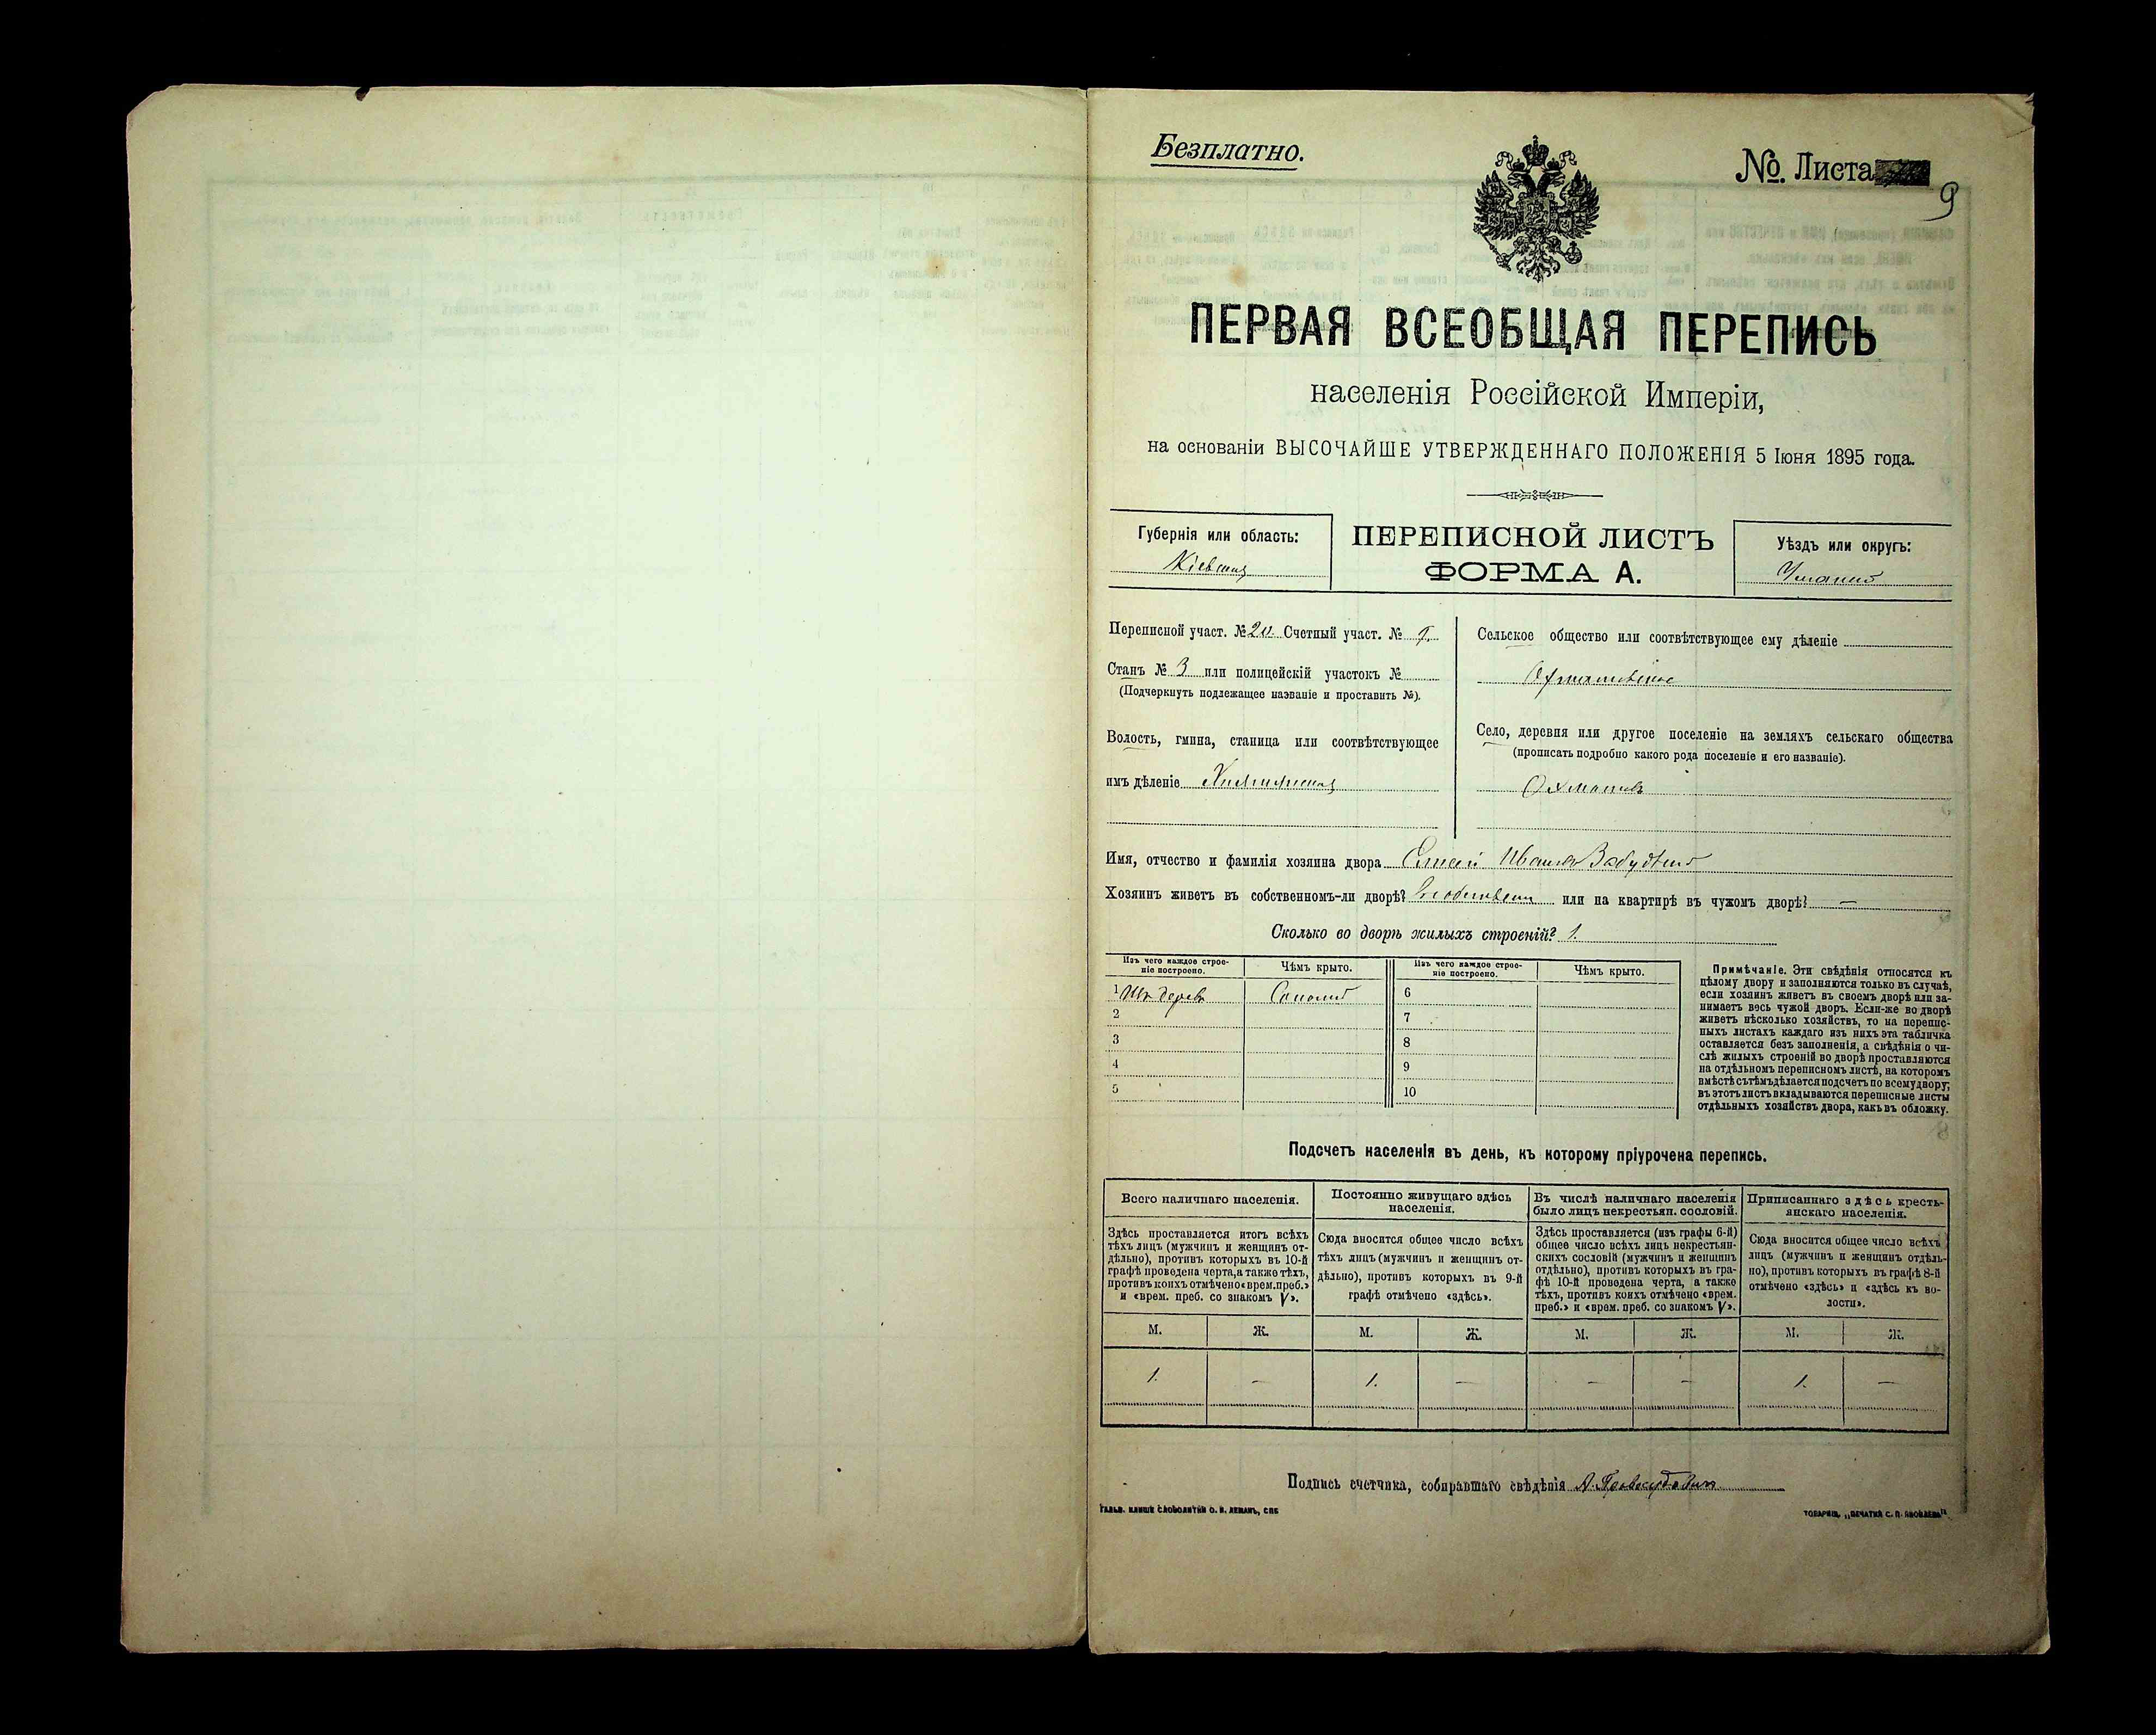 Безплатно.
№ Листа 9
ПЕРВАЯ ВСЕОБЩАЯ ПЕРЕПИСЬ
населенія Россійской Имперіи,
на основаніи ВЫСОЧАЙШЕ УТВЕРЖДЕННАГО ПОЛОЖЕНІЯ 5 Іюня 1895 года.
Губернія или область:
Кіевская
ПЕРЕПИСНОЙ ЛИСТЪ
ФОРМА А.
Уѣздъ или округъ:
Переписной участ. № 20. Счетный участ. №
Станъ № 3 или полицейскій участокъ №
(Подчеркнуть подлежащее названіе и проставить №).
Волость, гмина, станица или соотвѣтствующее
имъ дѣленіе
Сельское общество или соотвѣтствующее ему дѣленіе
Село, деревня или другое поселеніе на земляхъ сельскаго общества
(прописать подробно какого рода поселеніе и его названіе).
Охматовъ
Имя, отчество и фамилія хозяина двора
Хозяинъ живетъ въ собственномъ-ли дворѣ? или на квартирѣ въ чужомъ дворѣ? —
Сколько во дворѣ жилыхъ строеній? 1.
Изъ чего каждое строе-
ніе построено.
Чѣмъ крыто.
Изъ чего каждое строе-
ніе построено.
Чѣмъ крыто.
1 Изъ дерева Соломой 6
2 7
3 8
4 9
5 10
Примѣчаніе. Эти свѣдѣнія относятся къ
цѣлому двору и заполняются только въ случаѣ,
если хозяинъ живетъ въ своемъ дворѣ или за-
нимаетъ весь чужой дворъ. Если-же во дворѣ
живетъ нѣсколько хозяйствъ, то на перепис-
ныхъ листахъ каждаго изъ нихъ эта табличка
оставляется безъ заполненія, а свѣдѣнія о чи-
слѣ жилыхъ строеній во дворѣ проставляются
на отдѣльномъ переписномъ листѣ, на которомъ
вмѣстѣ съ тѣмъ дѣлается подсчетъ по всему двору;
въ этотъ листъ вкладываются переписные листы
отдѣльныхъ хозяйствъ двора, какъ въ обложку.
Подсчетъ населенія въ день, къ которому пріурочена перепись.
Всего наличнаго населенія.
Здѣсь проставляется итогъ всѣхъ
тѣхъ лицъ (мужчинъ и женщинъ от-
дѣльно), противъ которыхъ въ 10-й
графѣ проведена черта, а также тѣхъ,
противъ коихъ отмѣчено «врем. преб.»
и «врем. преб. со знакомъ V».
Постоянно живущаго здѣсь
населенія.
Сюда вносится общее число всѣхъ
тѣхъ лицъ (мужчинъ и женщинъ от-
дѣльно), противъ которыхъ въ 9-й
графѣ отмѣчено «здѣсь».
Въ числѣ наличнаго населенія
было лицъ некрестьян. сословій.
Здѣсь проставляется (изъ графы 6-й)
общее число всѣхъ лицъ некрестьян-
скихъ сословій (мужчинъ и женщинъ
отдѣльно), противъ которыхъ въ гра-
фѣ 10-й проведена черта, а также
тѣхъ, противъ коихъ отмѣчено «врем.
преб.» и «врем. преб. со знакомъ V».
Приписаннаго здѣсь кресть-
янскаго населенія.
Сюда вносится общее число всѣхъ
лицъ (мужчинъ и женщинъ отдѣль-
но), противъ которыхъ въ графѣ 8-й
отмѣчено «здѣсь» и «здѣсь къ во-
лости».
М. Ж. М. Ж. М. Ж. М. Ж.
1. — 1. — — — 1. —
Подпись счетчика, собиравшаго свѣдѣнія